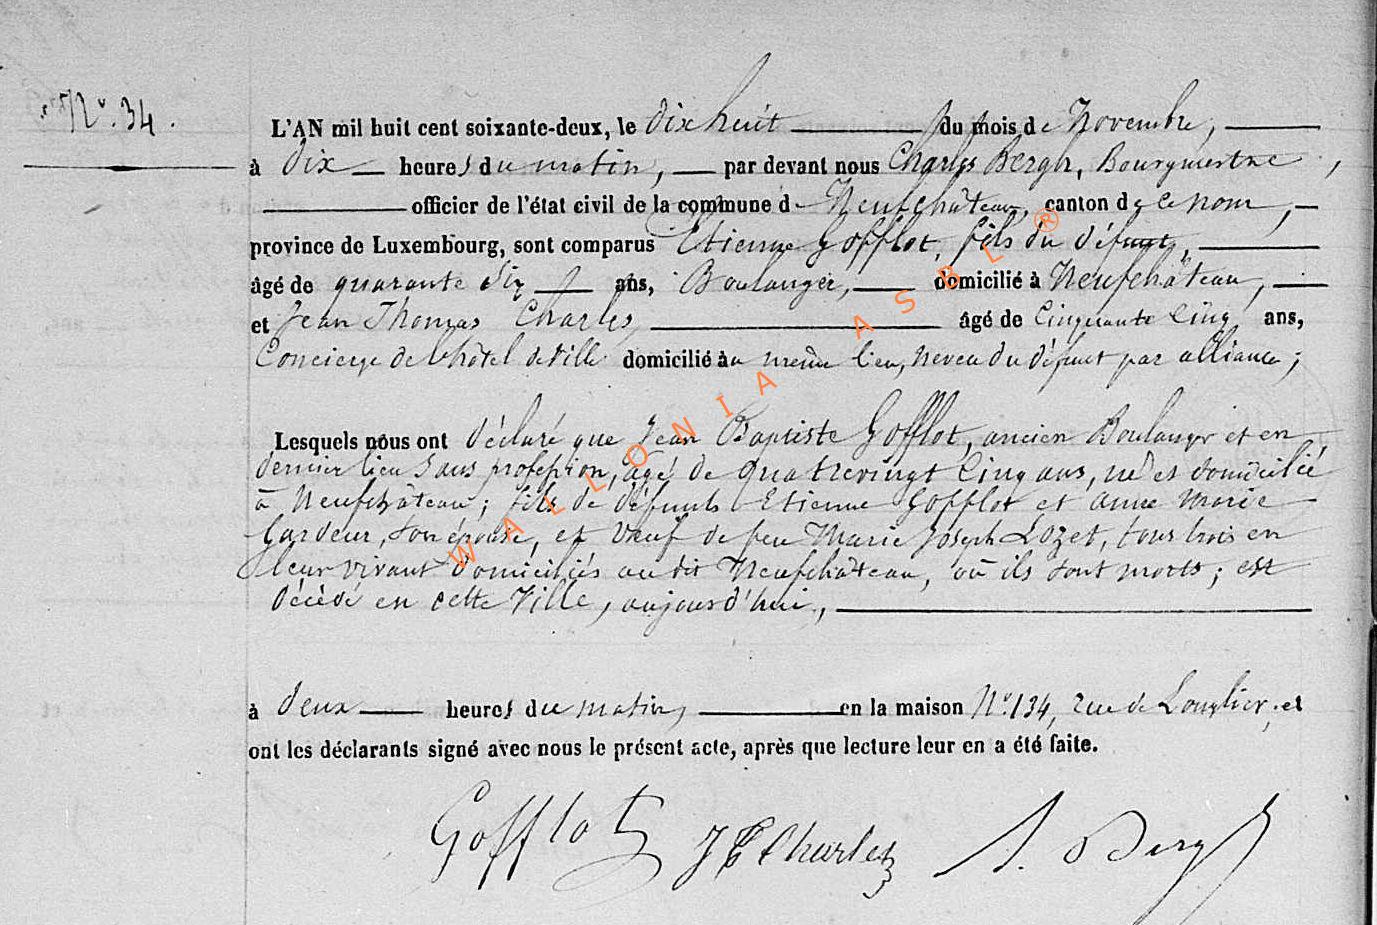 N° 34.
L'AN mil huit cent soixante-deux, le dix huit du mois de Novembre,
à dix heures du matin, par devant nous Charles Bergh, Bourgmestre,
officier de l'état civil de la commune de Neufchâteau, canton de ce nom,
province de Luxembourg, sont comparus Etienne Gofflot, fils du défunt,
âgé de quarante six ans, Boulanger, domicilié à Neufchâteau,
et Jean Thomas Charles, âgé de Cinquante Cinq ans,
Concierge de l'hôtel de Ville domicilié au même lieu, neveu du défunt par alliance;
Lesquels nous ont déclaré que Jean Baptiste Gofflot, ancien Boulanger et en
dernier lieu sans profession, âgé de quatrevingt Cinq ans, né et domicilié
à Neufchâteau; fils de défunts Etienne Gofflot et Anne Marie
Gardeur, son épouse, et Veuf de feu Marie Joseph Lozet, tous trois en
leur vivant domiciliés au dit Neufchâteau, où ils sont morts; est
décédé en cette Ville, aujourd'hui,
à deux heures du matin, en la maison N° 134, rue de Longlier, et
ont les déclarants signé avec nous le présent acte, après que lecture leur en a été faite.
Gofflot J T Charles Bergh
WALLONIA ASBL ®